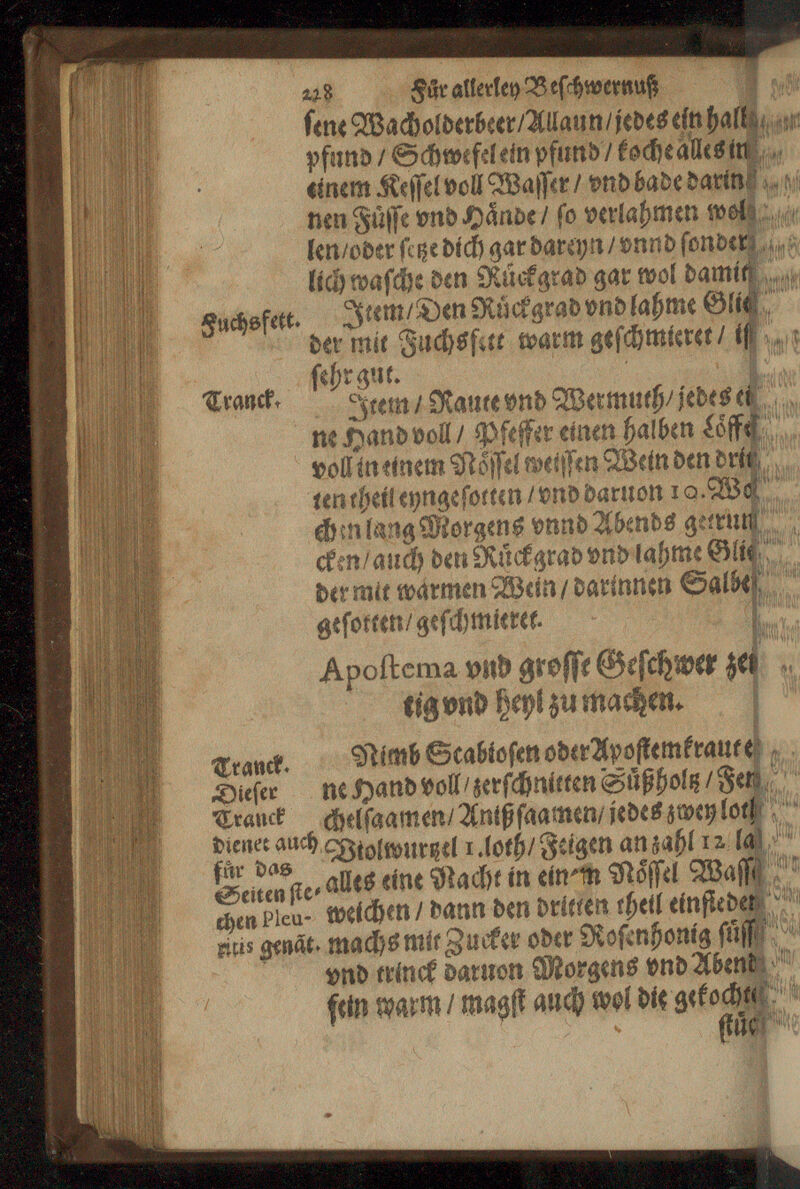 228 Für allerley Beſchwernuß
ſene Wacholderbeer / Allaun / jedes ein halb
pfund / Schwefel ein pfund / koche alles in
einem Keſſel voll Waſſer / vnd bade darin
nen Füſſe vnd Hände / ſo verlahmen wol
len / oder ſetze dich gar dareyn / vnnd ſonder
lich waſche den Rückgrad gar wol damit
Fuchsfett. Item / Den Rückgrad vnd lahme Glie
der mit Fuchsfett warm geſchmieret / iſt
ſehr gut.
Tranck. Item / Raute vnd Wermuth / jedes ei
ne Hand voll / Pfeffer einen halben Löffel
voll in einem Nöſſel weiſſen Wein den drit
ten theil eyngeſotten / vnd daruon 10. Wo
chen lang Morgens vnnd Abends getrun
cken / auch den Rückgrad vnd lahme Glie
der mit warmen Wein / darinnen Salbe
geſotten / geſchmieret.
Apoſtema vnd groſſe Geſchwer zei
tig vnd heyl zu machen.
Tranck. Nimb Scabioſen oder Apoſtemkraut e
Dieſer ne Hand voll / zerſchnitten Süßholtz / Fen
Tranck chelſaamen / Anißſaamen / jedes zwey loth
dienet auch Violwurtzel 1. loth / Feigen an zahl 12 la
für das
Seiten ſte- alles eine Nacht in einem Nöſſel Waſſer
chen Pleu- weichen / dann den dritten theil einſieden
ritis genāt. machs mit Zucker oder Roſenhonig ſüſſ
vnd trinck daruon Morgens vnd Abend
fein warm / magſt auch wol die gekochte
ſtück